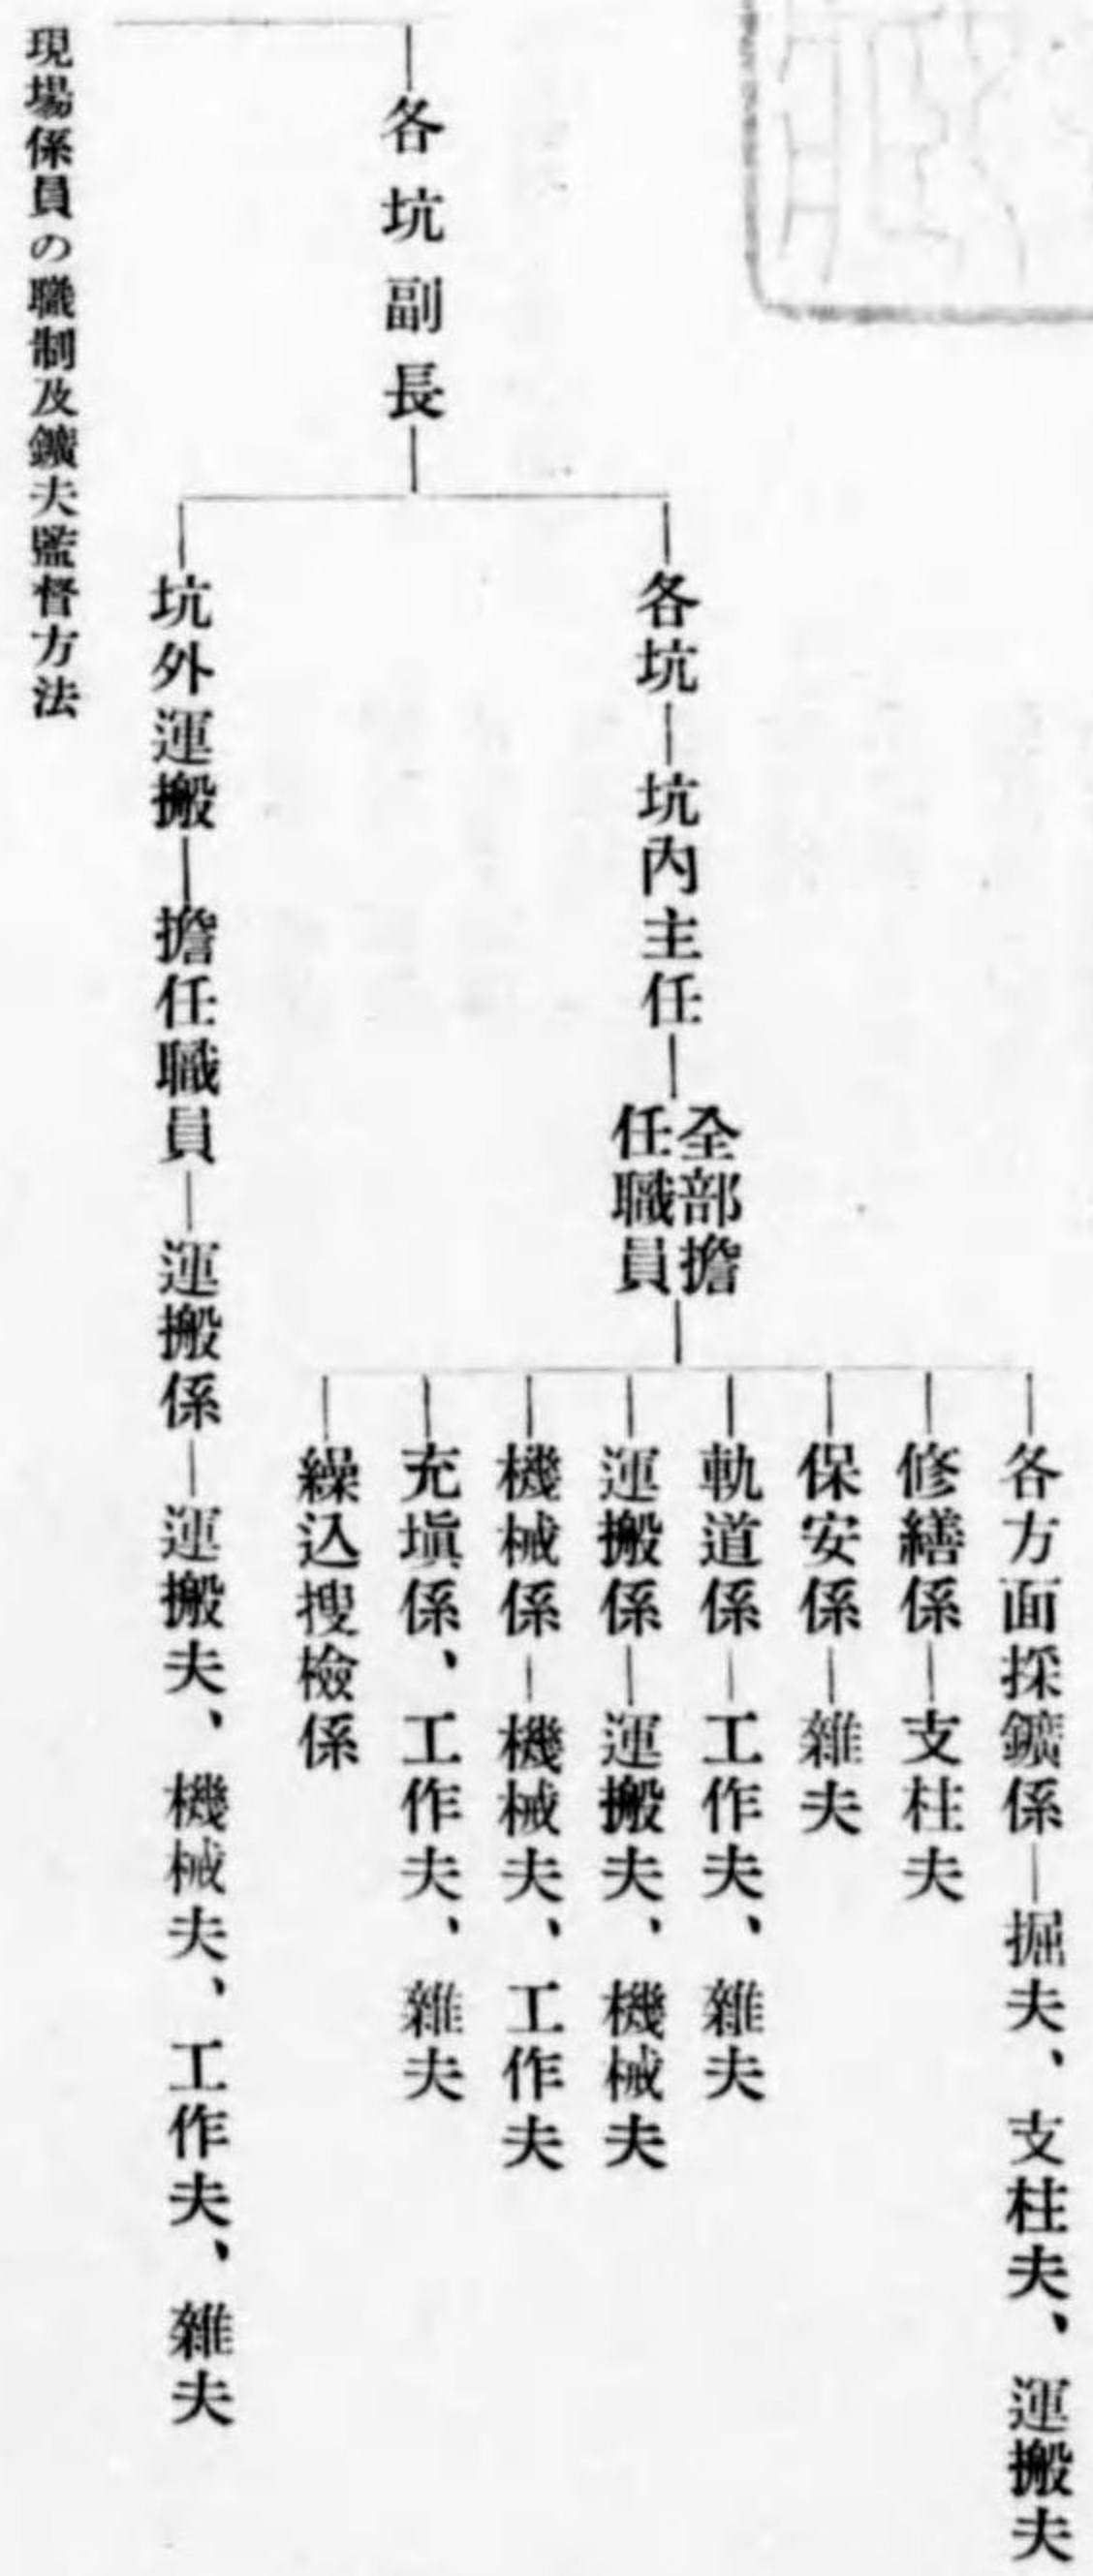 各坑副長
各坑―坑內主任―全部擔
任職員
各方面採鑛係―掘夫、支柱夫、運搬夫
修繕係―支柱夫
保安係―雜夫
軌道係―工作夫、雜夫
運搬係―運搬夫、機械夫
機械係―機械夫、工作夫
充塡係、工作夫、雜夫
繰込搜檢係
坑外運搬―擔任職員―運搬係―運搬夫、機械夫、工作夫、雜夫
現場係員の職制及鑛夫監督方法